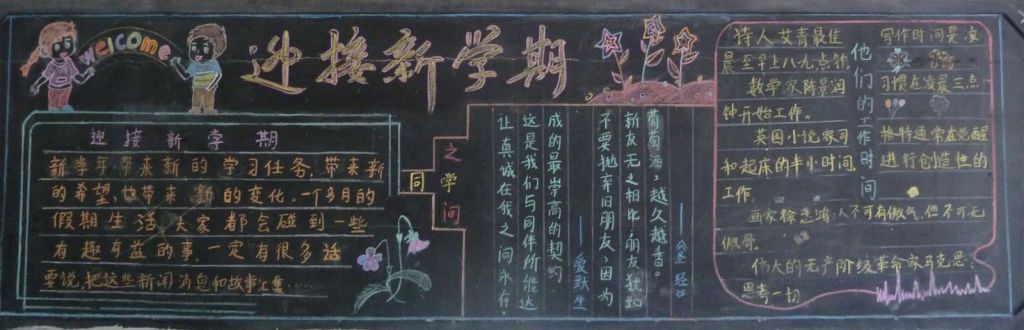 welcome
迎接新学期
迎接新学期
新学年带来新的学习任务,带来新
的希望,也带来新的变化。一个多月的
假期生活大家都会碰到一些
有趣有益的事,一定有很多话
要说,把这些新闻消息和故事汇集……
同学之间
让真诚在我之间永存,
这是我们与同伴所能达
成的最崇高的契约
——爱默生
不要抛弃旧朋友,因为
新友无之相比,朋友犹如
葡萄酒,越久越香。
——《圣经》
他们的工作时间
诗人艾青最佳写作时间是凌
晨至早上八九点钟
数学家陈景润习惯在凌晨三点
钟开始工作。
英国小说家司格特通常在觉醒
和起床的半小时间,进行创造性的
工作。
画家徐悲鸿:人不可有傲气,但不可无
傲骨。
伟大的无产阶级革命家马克思:
思考一切